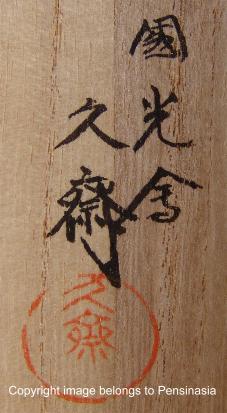 國光會
久齋
久齋
Copyright image belongs to Pensinasia